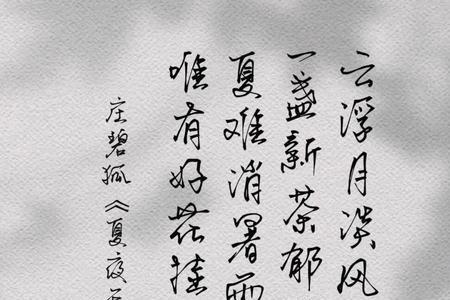 云浮月淡风
一盏新茶郁
夏难消暑
唯有好花挂
庄碧狐《夏夜